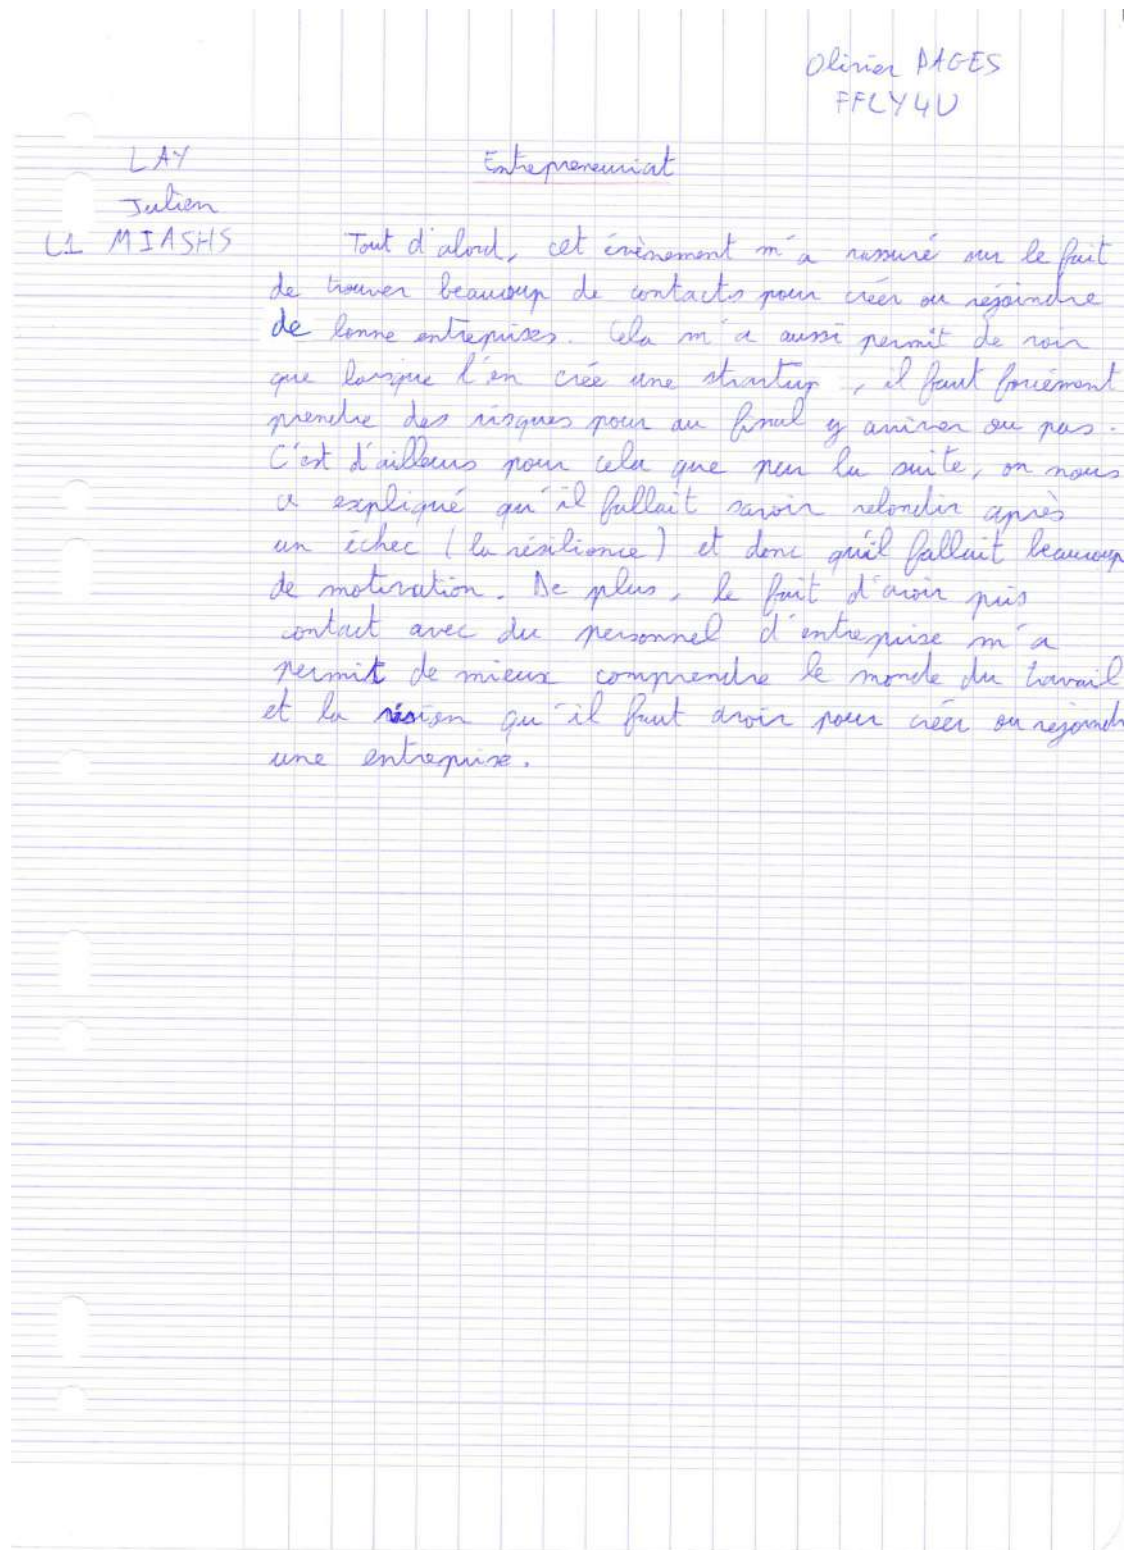 Olivier PAGES
FFLY4U
LAY
Entrepreneuriat
Julien
L1 MIASHS
Tout d'abord, cet évènement m'a rassuré sur le fait
de trouver beaucoup de contacts pour créer ou rejoindre
de bonne entreprises. Cela m'a aussi permit de voir
que lorsque l'on crée une strartup, il faut forcément
prendre des risques pour au final y arriver ou pas.
C'est d'ailleurs pour cela que par la suite, on nous
a expliqué qu'il fallait savoir rebondir après
un échec (la résilience) et donc qu'il fallait beaucoup
de motivation. De plus, le fait d'avoir pris
contact avec du personnel d'entreprise m'a
permit de mieux comprendre le monde du travail
et la vision qu'il faut avoir pour créer ou rejoindre
une entreprise.